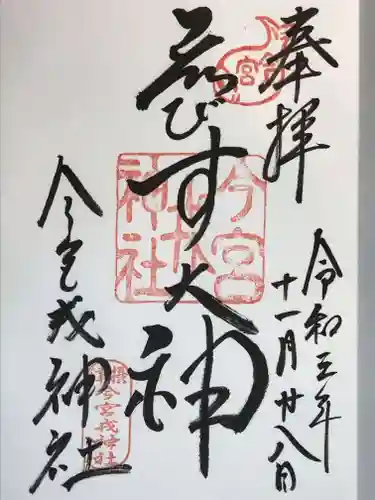 奉拝
令和三年
十一月廿八日
ゑびす大神
今宮戎神社
今宮戎神社
摂津
今宮戎神社